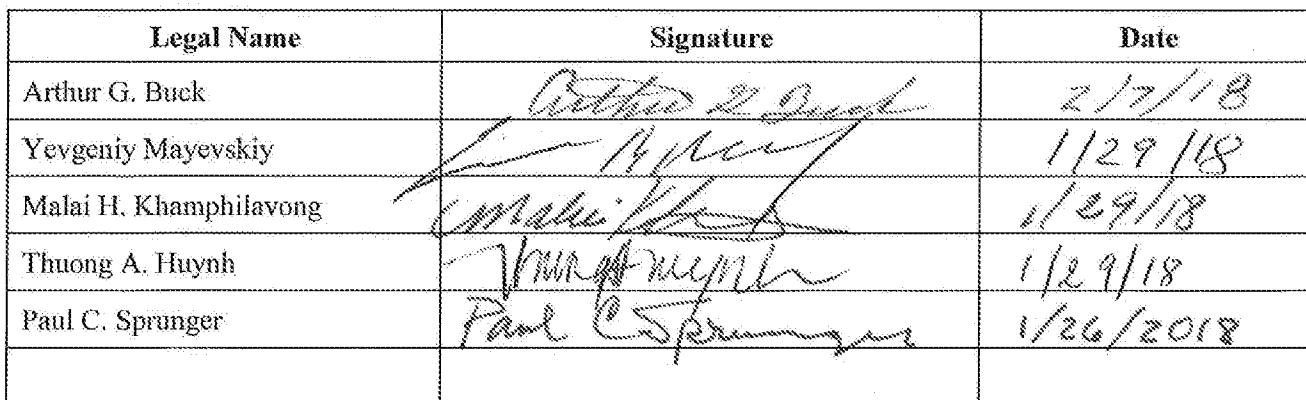 Legal Name Signature Date
Arthur G. Buck Arthur G Buck 2/7/18
Yevgeniy Mayevskiy 1/29/18
Malai H. Khamphilavong Malai 1/29/18
Thuong A. Huynh Thuong A Huynh 1/29/18
Paul C. Sprunger Paul C. Sprunger 1/26/2018